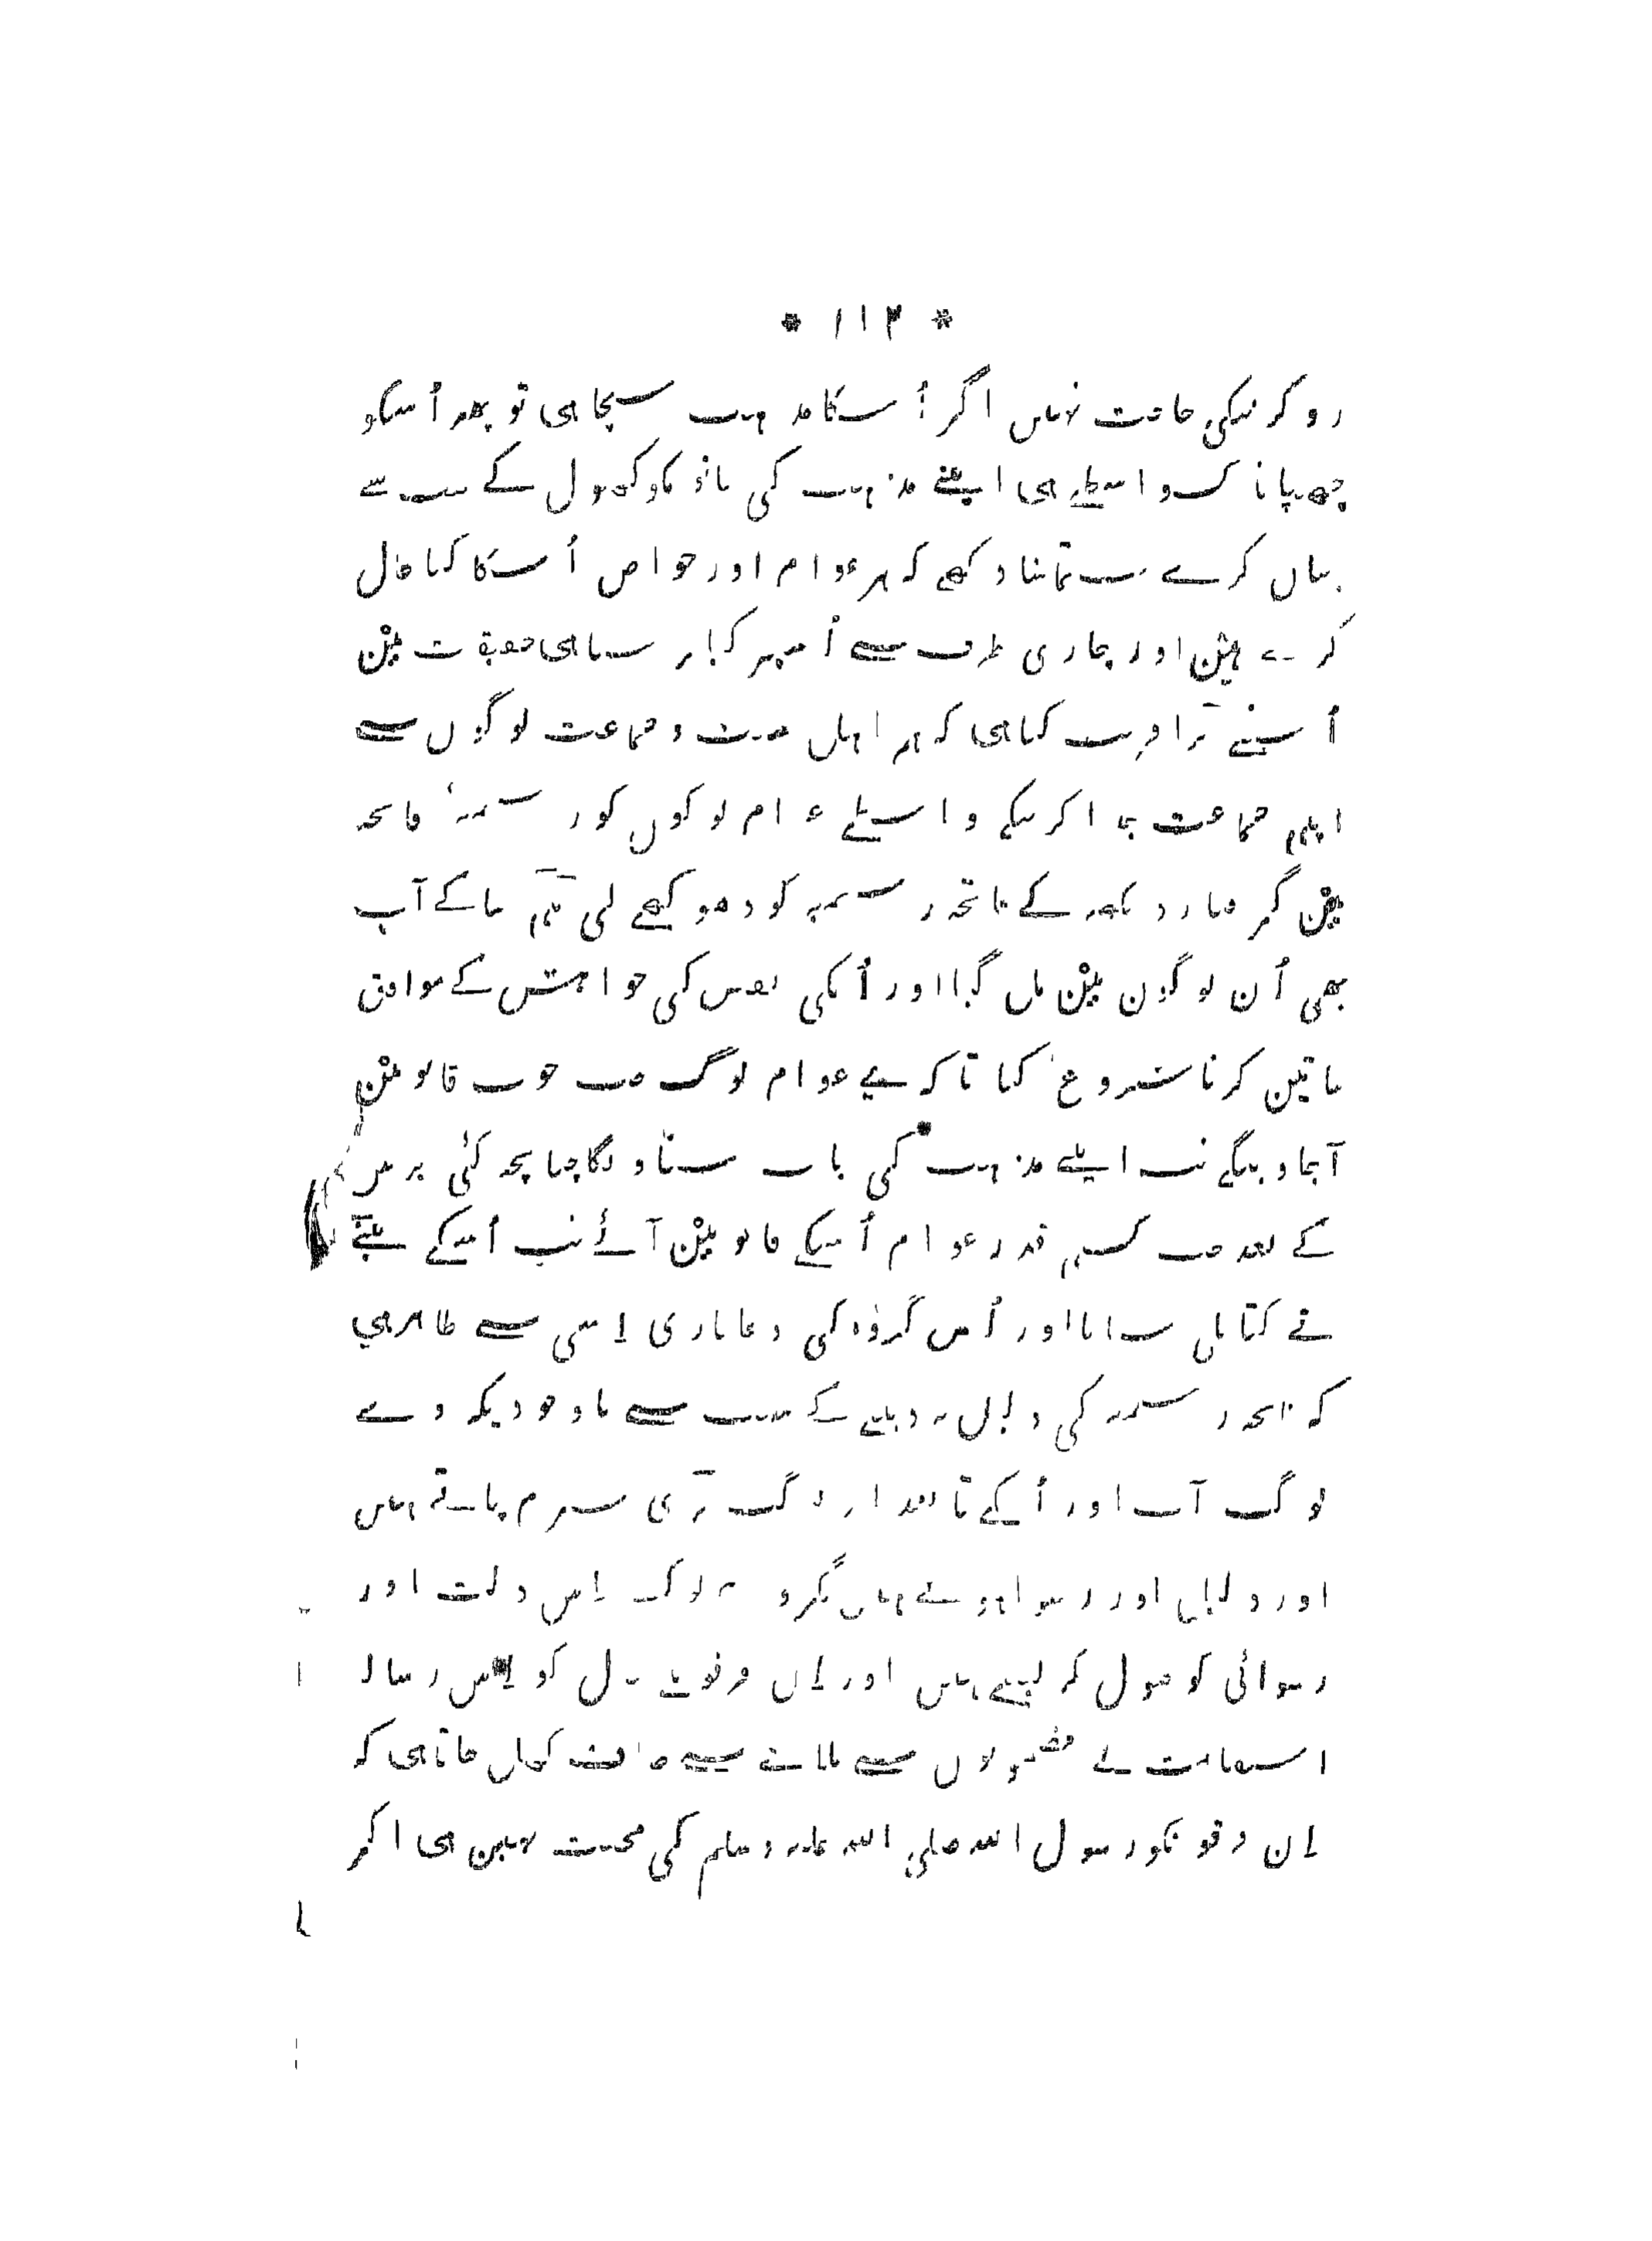 * ۱۱۲ *
رو کرنیکی حاجت نہیں اگر اُسکا مذہب سچا ہی تو پھر اُسکو
چھپانا کسواسطے ہی اپنے مذہب کی باتونکو کھول کے سب سے
بیان کرے تب تماشا دکھے کہ ہر عوام اور خواص اُسکا کیا حال
کرتے ہیں اور ہماری طرف سے اُسپر کیا برستا ہی حقیقت میں
اُسنے بڑا فریب کیا ہی کہ ہم اہل سنت و جماعت لوگوں سے
اپنی جماعت جدا کرنیکے واسطے عوام لوگوں کو رسمیہ فاتحہ
میں گرفتار دیکھ کے فاتحہ رسمیہ کو دھوکھے کی ٹٹی بنا کے آپ
بھی اُن لوگوں میں مل گیا اور اُنکی نفس کی خواہش کے موافق
باتیں کرنا شروع کیا تاکہ یے عوام لوگ جب خوب قابو میں
آجاوینگے تب اپنے مذہب کی بات سناونگا چنانچہ کئی برس
کے بعد جب کسی قدر عوام اُسکے قابو میں آئے تب اُسکے بیٹے
نے کتابیں سنایا اور اُس گروہ کی دغابازی اِسی سے ظاہر ہی
کہ فاتحہ رسمیہ کی دلیل نہ دینے کے سبب سے باوجودیکہ وے
لوگ آپ اور اُنکے تابعدار لوگ بڑی شرم پاتے ہیں
اور ذلیل اور رسوا ہوتے ہیں مگر وہ لوگ اِس ذلت اور
رسوائی کو قبول کر لیتے ہیں اور اِن فرقونکے حال کو اِس رسالہ
استقامت کے مضمونوں سے ملانے سے صاف کھل جاتا ہی کہ
اِن فرقونکو رسول اللہ صلی اللہ علیہ وسلم کی محبت نہیں ہی اگر